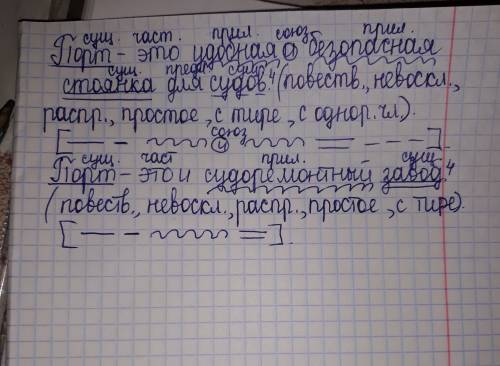 сущ. част. прил. союз прил.
Порт - это удобная и безопасная
сущ. предл. сущ.
стоянка для судов.⁴ (повеств., невоскл.,
распр., простое, с тире, с однор. чл.).
союз
[— – и = - - -].
сущ. част прил. сущ.
Порт - это и судоремонтный завод.⁴
(повеств., невоскл., распр., простое, с тире).
[— – =].